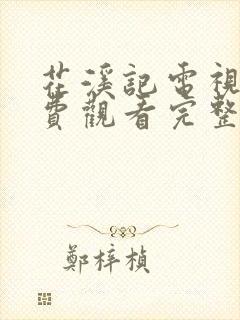 花溪記電視
費觀看完整
鄭梓楨